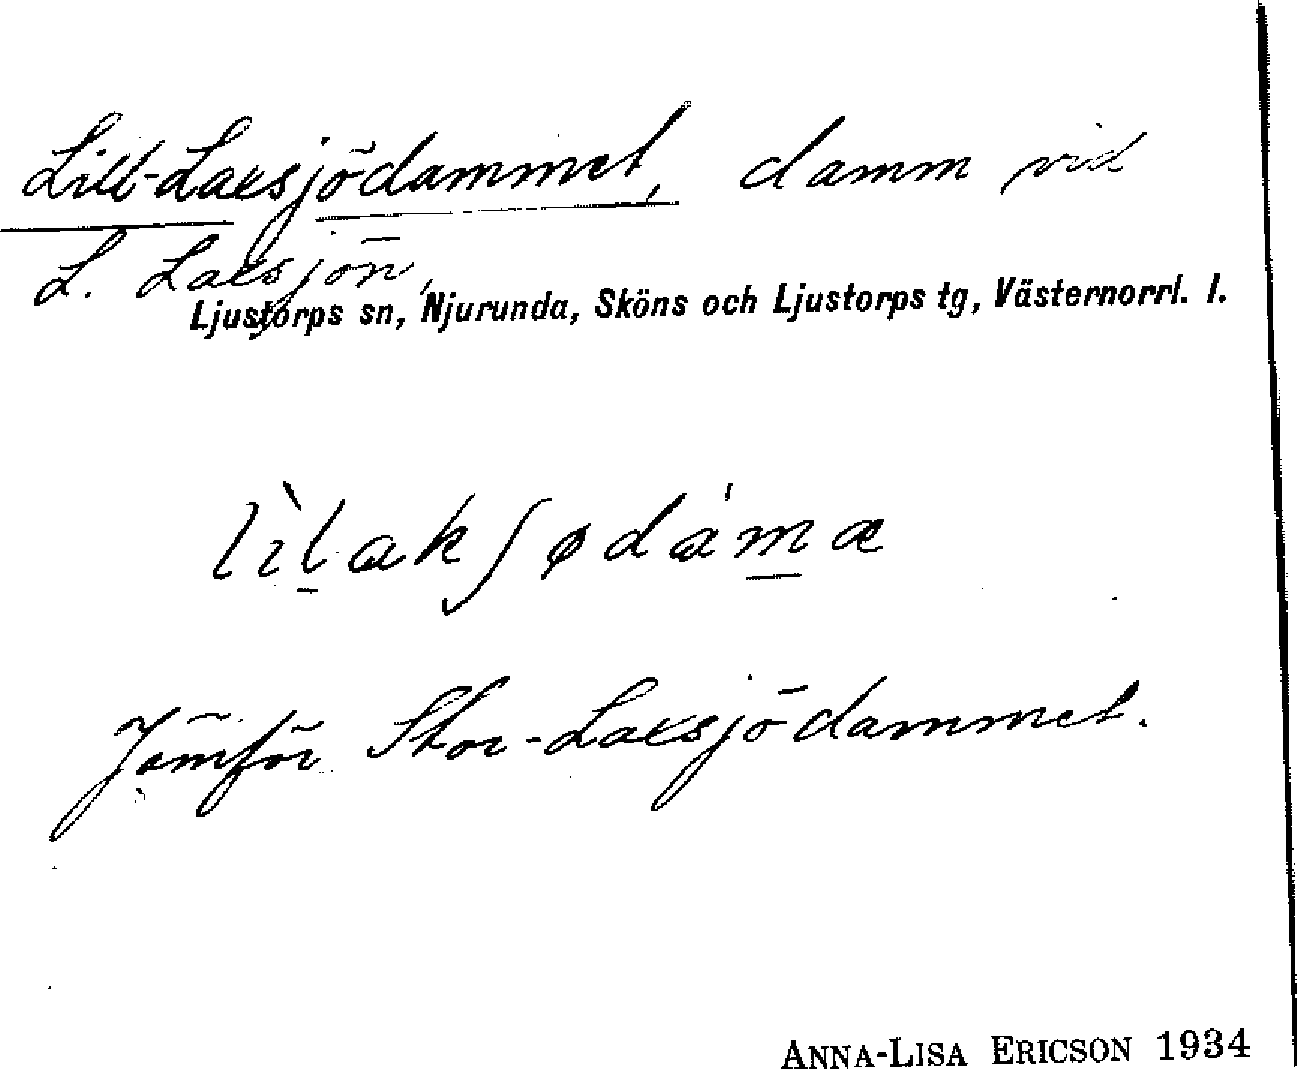 Lill-Laxsjödammet, damm vid
L. Laxsjön,
Ljustorps sn, Njurunda, Sköns och Ljustorps tg, Västernorrl. l.
lìlakʃødáma
Jämför Stor-Laxsjödammet.
ANNA-LISA ERICSON 1934